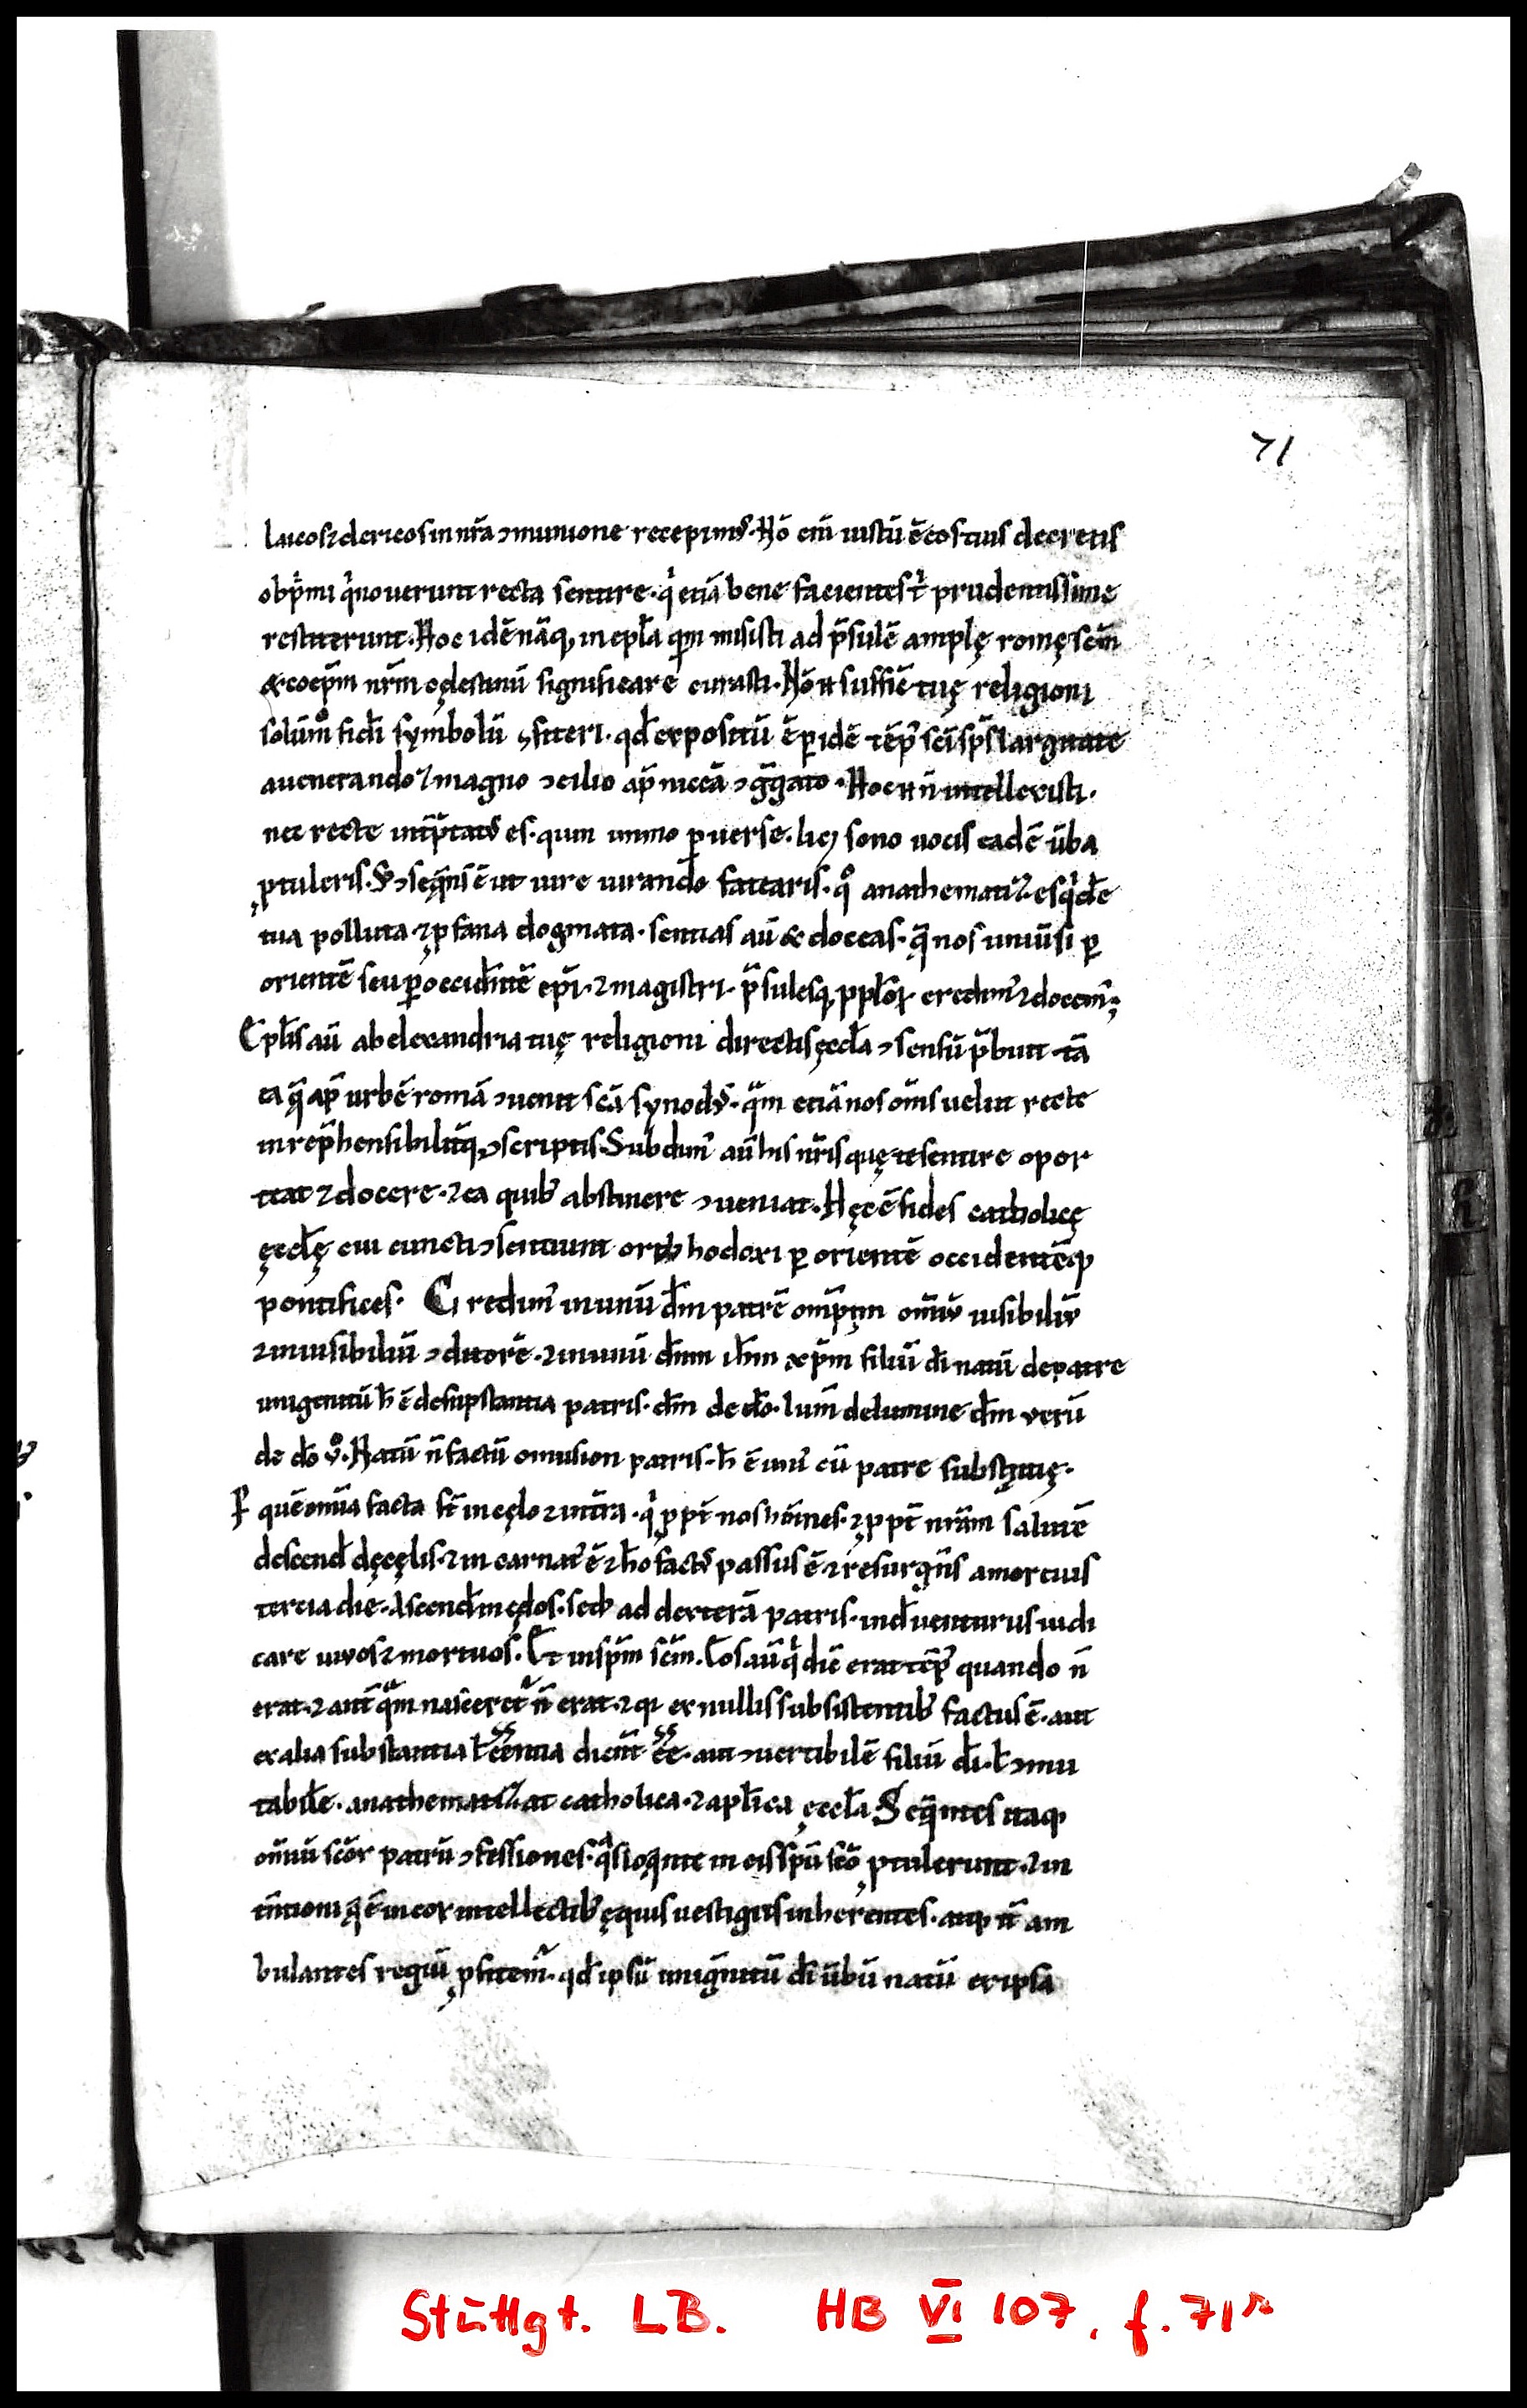 71
laicos ⁊ clericos in nr̄a ɔmunione recepimꝰ. Nō eni̅ iustū ē eos tuis decretis
obp̄mi qͥ noverunt recta sentire. qͥ etiā bene facientes t̄ prudentissime
restiterunt. Hoc idē nāq; in epl̄a qm̄ misisti ad p̄sulē amplę romę scm̄
& coep̄m nr̄m cęlestinū significare curasti. Nō ħ suffic̄ tuę religioni
solum̄ fidi̅ symbolū ꝯfiteri. qd̄ expositū ē ꝑ idē tēp̄ sc̄i sp̄s largitate
a venerando ⁊ magno ɔcilio ap̄ niceā ɔg̅gato. Hoc ħ n̄ intellexisti.
nec recte int̄p̄tatꝰ es. quin immo ꝑverse. licꝫ sono vocis eadē v̄ba
ꝓtuleris. S; ɔseq̄ns ē ut iure iurando fatearis. qͦ anathematiz̄es qͥdē
tua polluta ⁊ ꝓfana dogmata. sentias aū & doceas. q̄ nos univ̄si ꝑ
orientē seu ꝑ occid̄ntē ep̄i. ⁊ magistri. p̄sulesq; ppl̄oꝝ credimꝰ ⁊ docemꝰ;
Epl̄is aū ab elexandria tuę religioni directis ęccl̄a ɔsensū p̄buit tā
ea q̄ ap̄ urbē romā ɔvenit sc̄a synodꝰ. q̄m etiā nos om̄s velut recte
inrep̄hensibilit̄q; ɔscriptis Subdimꝰ aū his nr̄is quę te sentire opor
teat ⁊ docere. ⁊ ea quibꝰ abstinere ɔveniat. Hęc ē fides catholicę
ęccl̄ę cui cuncti ɔsentiunt orthodoxi ꝑ orientē occidentēq;
pontifices. Credimꝰ in unū dm̄ patrē omp̄tm̄ om̄iū visibiliū
⁊ invisibiliū ɔditorē. ⁊ in unū dn̄m ih̄m xp̄m filiū di̅ natū de patre
unigenitū h̄ ē de supstantia patris. dm̄ de do̅. lum̄ de lumine dm̄ verū
de do̅ v̊o. Natū n̄ factū omusion patris. h̄ ē unꝰ cū patre substątię.
Ꝑ quē omīa facta st̄ in cęlo ⁊ in t̄ra. qͥ ꝓpt̄ nos hōines. ⁊ ꝓpt̄ nr̄am salutē
descend̄ de cęlis. ⁊ incarnatꝰ ē ⁊ ho̅ factꝰ passus ē ⁊ resurg̅ns a mortuis
tercia die. Ascend̄ in cęlos. sed; ad dexterā patris. ind̄ venturus iudi
care vivos ⁊ mortuos. Et in sp̄m sc̄m. Eos aū qͥ dic̄ erat tēp̄ quando n̄
erat. ⁊ ant̄ q̄m nasceret̄ n̄ erat. ⁊ qꝛ ex nullis subsistentibꝰ factus ē. aut
ex alia substantia ł eēntia dicūt eē. aut ɔvertibilē filiū di̅. ł ɔmu
tabil̄e. anathematizat catholica. ⁊ apl̄ica ęccl̄a Seq̄ntes itaq;
om̄iū sc̄oꝝ patrū ɔfessiones. qͣs loq̄nte in eis sp̄ū sc̄o ꝓtulerunt. ⁊ in
tn̄tioni q̄ ē in eoꝝ intellectibꝰ ęquis vestigiis inherentes. atq; n̄ am
bulantes regiū ꝓfitem̄. qd̄ ipsū unig̅nitū di̅ v̄bū natū ex ipsa
Stuttgt. LB. HB VI 107, f. 71r